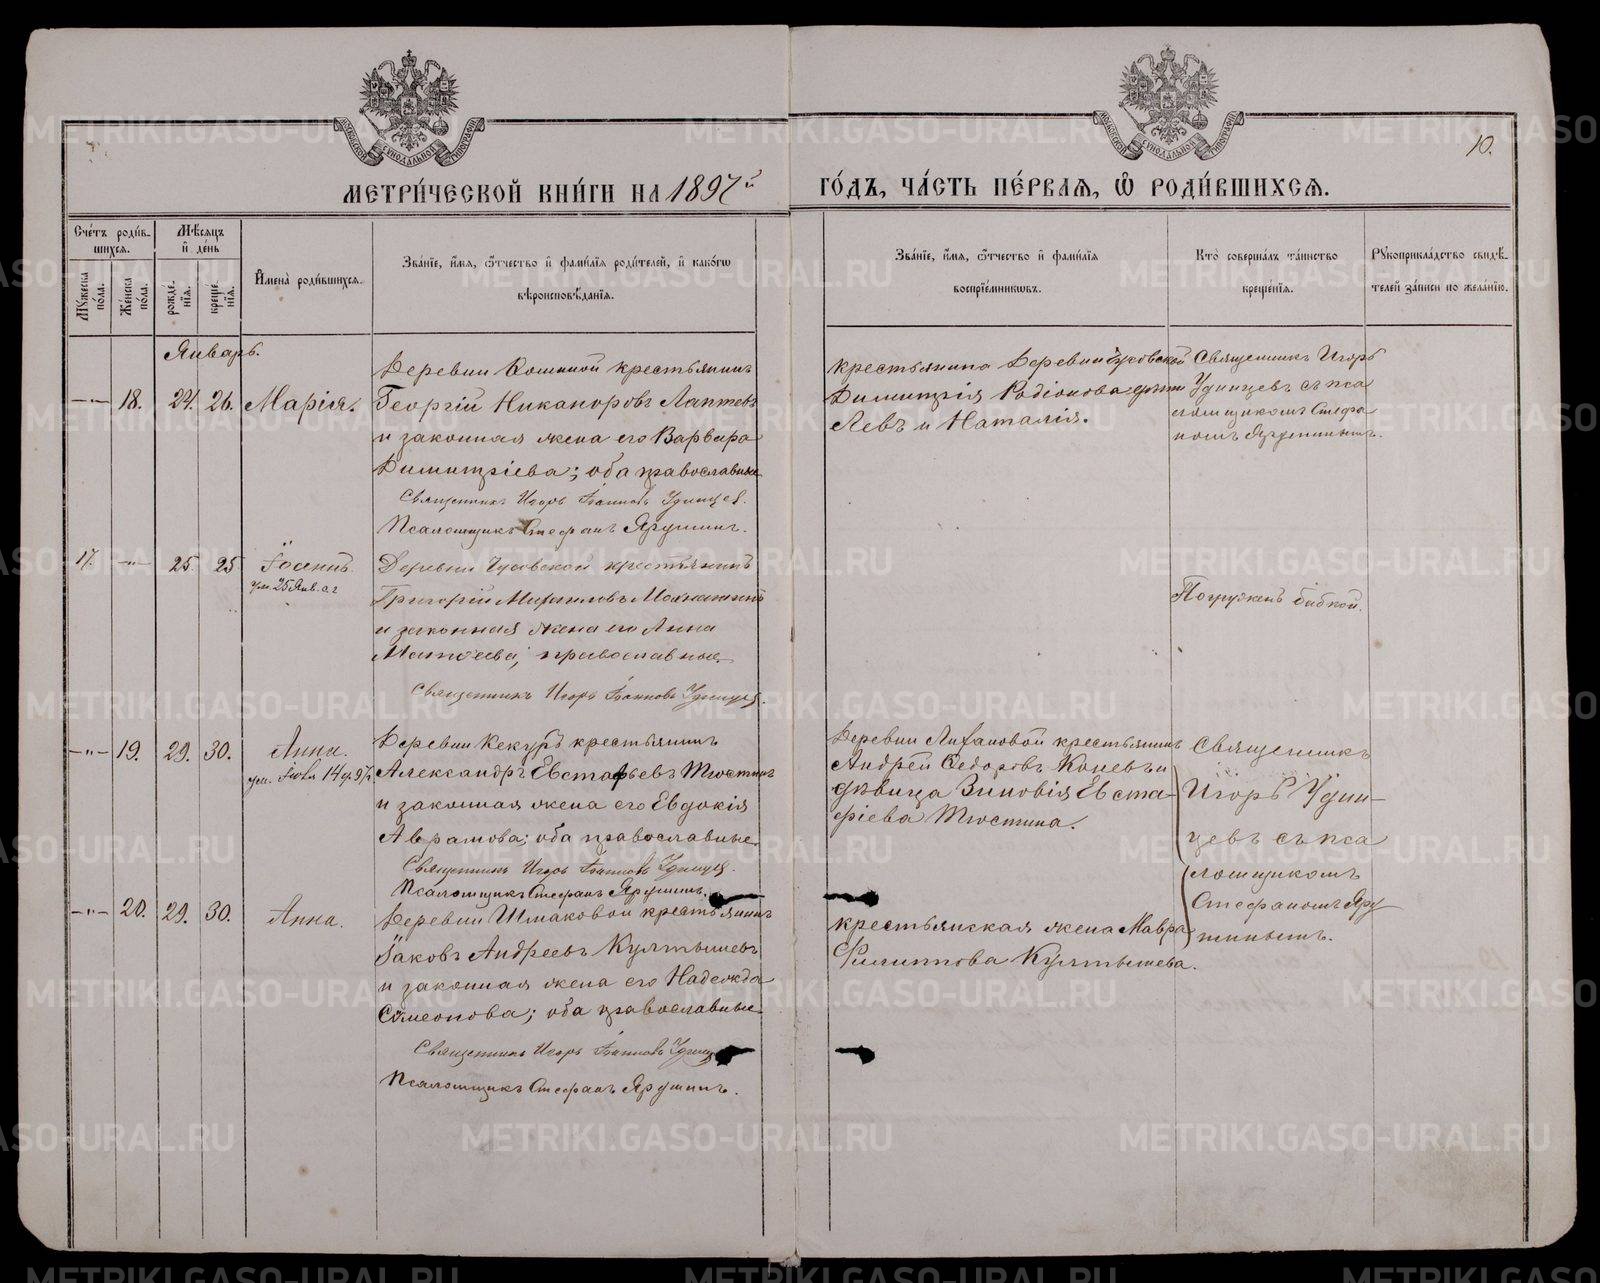 МОСКОВСКОЙ СѴНОДАЛЬНОЙ ТИПОГРАФІИ
МОСКОВСКОЙ СѴНОДАЛЬНОЙ ТИПОГРАФІИ
10.
МЕТРИ́ЧЕСКОЙ КНИ́ГИ НА 1897й
ГО́ДЪ, ЧА́СТЬ ПЕ́РВАѦ, Ѡ҆ РОДИ́ВШИХСѦ.
Сче́тъ роди́в-
шихся.
Мꙋжеска по́ла.
Же́нска по́ла.
Мѣ́сяцъ и҆ де́нь
рожде́-
нїя.
креще́-
нїя.
И҆мена̀ роди́вшихся.
Зва́нїе, и҆́мя, ѻ҆́тчество и҆ фами́лїя роди́телей, и҆ како́гѡ
вѣроисповѣ́данїя.
Зва́нїе, и҆́мя, ѻ҆́тчество и҆ фами́лїя
воспрїе́мниковъ.
Кто̀ соверша́лъ та́инство
креще́нїя.
Рꙋкоприкла́дство свидѣ́-
телей за́писи по жела́нїю.
Январь.
—"— 18. 24. 26. Марія.
Деревни Коминой крестьянинъ
Георгій Никаноровъ Лаптевъ
и законная жена его Варвара
Димитріева; оба православные
Священникъ Игорь Іоанновъ Удинцев.
Псаломщикъ Стефанъ Ярушинъ.
крестьянина деревни Чусовской
Димитрія Родіонова дѣти
Левъ и Наталія.
Священникъ Игорь
Удинцевъ съ пса
ломщикомъ Стефа
номъ Ярушинымъ.
17. —"— 25. 25
ум. 25 Янв. с.г
Деревни Чусовской крестьянинъ
Григорій Михаиловъ
и законная жена его Анна
православные
Священникъ Игорь Іоанновъ Удинцев.
Погруженъ бабкой.
—"— 19. 29. 30. Анна.
ум. 14 97
Деревни Кекуръ крестьянинъ
Александръ Евстафьевъ Тюстинъ
и законная жена его Евдокія
Аврамова; оба православные
Священникъ Игорь Іоанновъ Удинцев.
Псаломщикъ Стефанъ Ярушинъ.
Деревни Лихановой крестьянинъ
Андрей Ѳедоровъ Коневъ и
дѣвица Зиновія Евста
фіева Тюстина.
Священникъ
Игорь Удин-
цевъ съ пса
ломщикомъ
Стефаномъ Яру
шинымъ.
—"— 20. 29. 30. Анна.
Деревни Шмаковой крестьянинъ
Іаковъ Андреевъ Култышевъ
и законная жена его Надежда
Симеонова; оба православные
Священникъ Игорь Іоанновъ
Псаломщикъ Стефанъ Ярушинъ.
крестьянская жена Мавра
Филиппова Култышева.
METRIKI.GASO-URAL.RU